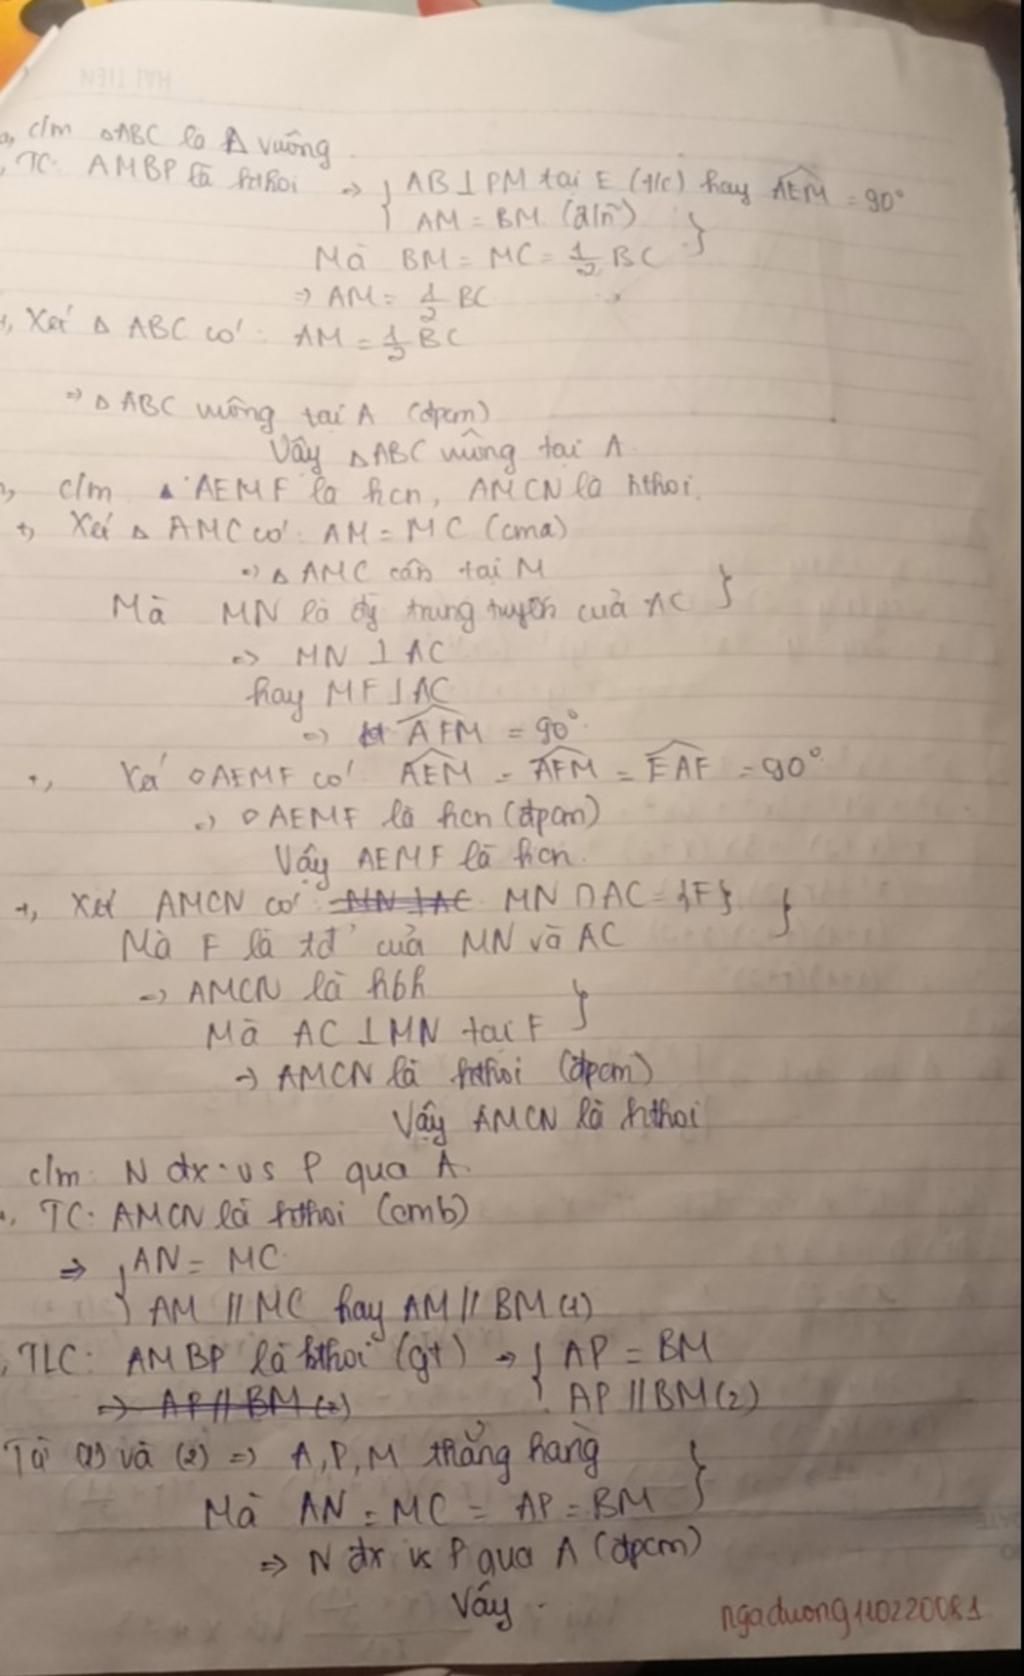 c/m △ABC là △ vuông.
TC: AMBP là hthoi => { AB ⊥ PM tại E (t/c) hay AEM = 90°
AM = BM (đ/n) }
Mà BM = MC = 1/2 BC
=> AM = 1/2 BC
+, Xét △ ABC có: AM = 1/2 BC
=> △ ABC vuông tại A (đpcm)
Vậy △ABC vuông tại A
c/m AEMF là hcn, AMCN là hthoi.
+, Xét △ AMC có: AM = MC (cma)
=> △ AMC cân tại M
Mà MN là đg trung tuyến của AC }
=> MN ⊥ AC
hay MF ⊥ AC
=> AFM = 90°
+, Xét ▱AEMF có AEM = AFM = EAF = 90°
=> ▱AEMF là hcn (đpcm)
Vậy AEMF là hcn.
+, Xét AMCN có MN ⊥ AC MN ∩ AC = {F} }
Mà F là tđ của MN và AC
=> AMCN là hbh }
Mà AC ⊥ MN tại F
=> AMCN là hthoi (đpcm)
Vậy AMCN là hthoi
c/m: N đx vs P qua A.
TC: AMCN là hthoi (cmb)
=> { AN = MC
AM // MC hay AM // BM (1)
TLC: AMBP là hthoi (gt) => { AP = BM
=> AP // BM (2) AP // BM (2)
Từ (1) và (2) => A, P, M thẳng hàng }
Mà AN = MC = AP = BM
=> N đx vs P qua A (đpcm)
Vậy .
ngaduong110220081